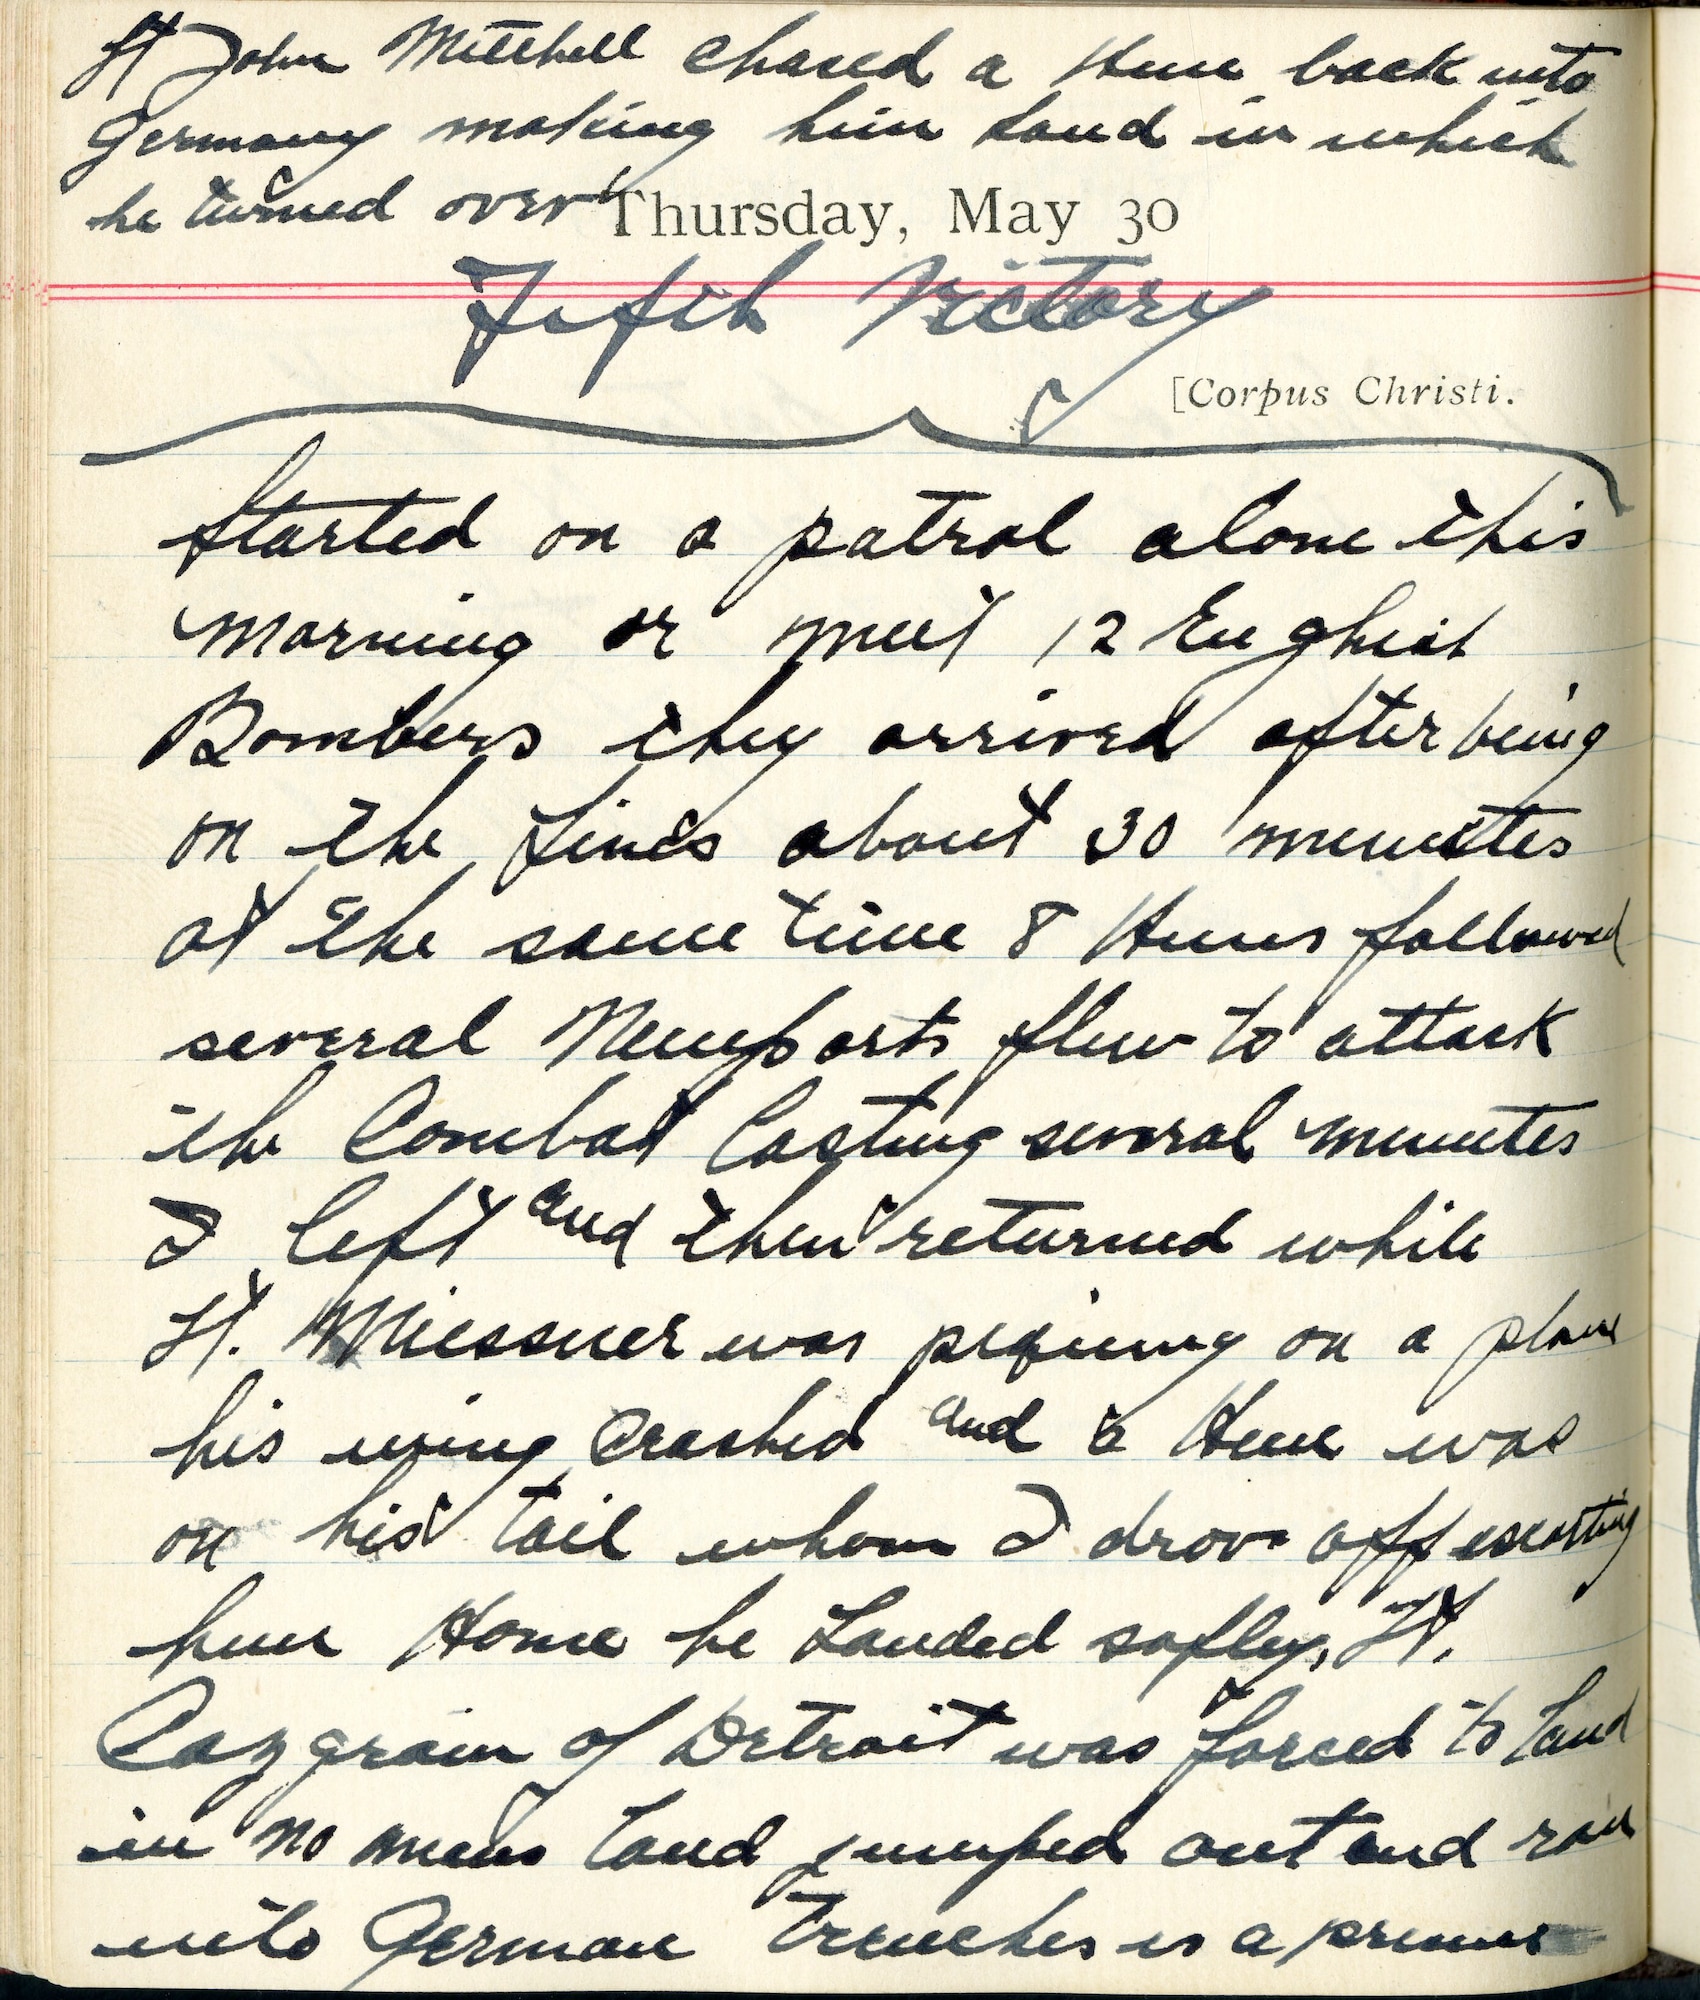 Lt John Mitchell chased a Hun back into
Germany making him land in which
he turned over
Thursday, May 30
Fifth Victory
[Corpus Christi.
Started on a patrol alone this
morning or meet 12 English
Bombers they arrived after being
on the Lines about 30 minutes
at the same time 8 Huns followed
several Neuports flew to attack
the Combat lasting several minutes
I left and then returned while
Lt. Miessner was piquing on a plane
his wing crashed and a Hun was
on his tail whom I drove off escorting
him Home he Landed safley, Lt.
Cazgrain of Detroit was forced to land
in no mans land jumped out and ran
into German Trenches is a